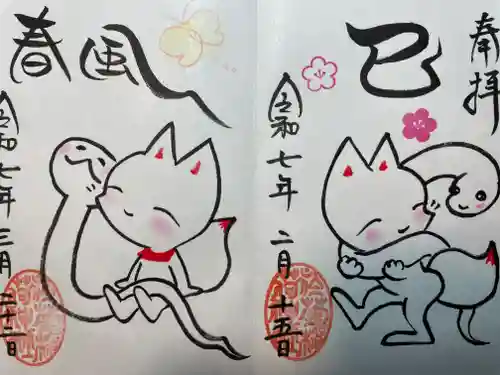 奉拝
巳
令和七年 二月十五日
春風
令和七年 三月二十二日